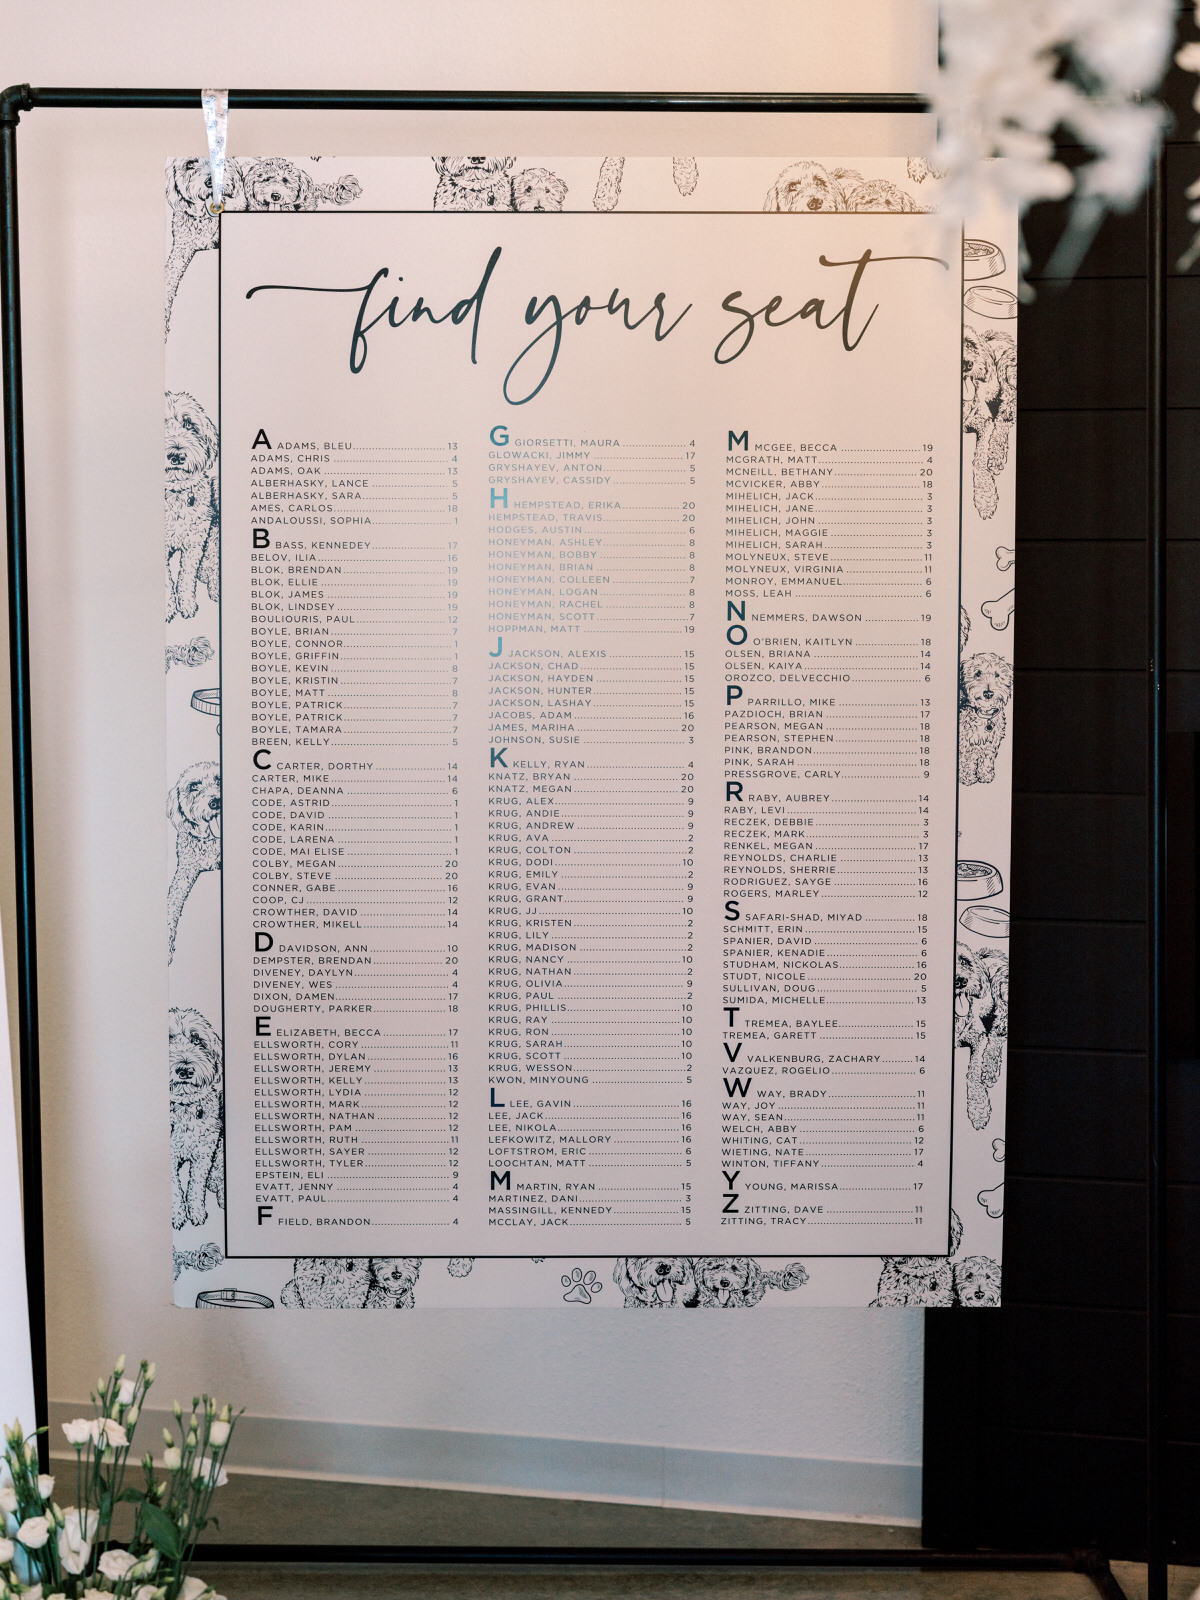 find your seat
A ADAMS, BLEU 13
ADAMS, CHRIS 4
ADAMS, OAK 13
ALBERHASKY, LANCE 5
ALBERHASKY, SARA 5
AMES, CARLOS 18
ANDALOUSSI, SOPHIA 1
B BASS, KENNEDEY 17
BELOV, ILIA 16
BLOK, BRENDAN 19
BLOK, ELLIE 19
BLOK, JAMES 19
BLOK, LINDSEY 19
BOULIOURIS, PAUL 12
BOYLE, BRIAN 7
BOYLE, CONNOR 1
BOYLE, GRIFFIN 1
BOYLE, KEVIN 8
BOYLE, KRISTIN 7
BOYLE, MATT 8
BOYLE, PATRICK 7
BOYLE, PATRICK 7
BOYLE, TAMARA 7
BREEN, KELLY 5
C CARTER, DORTHY 14
CARTER, MIKE 14
CHAPA, DEANNA 6
CODE, ASTRID 1
CODE, DAVID 1
CODE, KARIN 1
CODE, LARENA 1
CODE, MAI ELISE 1
COLBY, MEGAN 20
COLBY, STEVE 20
CONNER, GABE 16
COOP, CJ 12
CROWTHER, DAVID 14
CROWTHER, MIKELL 14
D DAVIDSON, ANN 10
DEMPSTER, BRENDAN 20
DIVENEY, DAYLYN 4
DIVENEY, WES 4
DIXON, DAMEN 17
DOUGHERTY, PARKER 18
E ELIZABETH, BECCA 17
ELLSWORTH, CORY 11
ELLSWORTH, DYLAN 16
ELLSWORTH, JEREMY 13
ELLSWORTH, KELLY 13
ELLSWORTH, LYDIA 12
ELLSWORTH, MARK 12
ELLSWORTH, NATHAN 12
ELLSWORTH, PAM 12
ELLSWORTH, RUTH 11
ELLSWORTH, SAYER 12
ELLSWORTH, TYLER 12
EPSTEIN, ELI 9
EVATT, JENNY 4
EVATT, PAUL 4
F FIELD, BRANDON 4
G GIORSETTI, MAURA 4
GLOWACKI, JIMMY 17
GRYSHAYEV, ANTON 5
GRYSHAYEV, CASSIDY 5
H HEMPSTEAD, ERIKA 20
HEMPSTEAD, TRAVIS 20
HODGES, AUSTIN 6
HONEYMAN, ASHLEY 8
HONEYMAN, BOBBY 8
HONEYMAN, BRIAN 8
HONEYMAN, COLLEEN 7
HONEYMAN, LOGAN 8
HONEYMAN, RACHEL 8
HONEYMAN, SCOTT 7
HOPPMAN, MATT 19
J JACKSON, ALEXIS 15
JACKSON, CHAD 15
JACKSON, HAYDEN 15
JACKSON, HUNTER 15
JACKSON, LASHAY 15
JACOBS, ADAM 16
JAMES, MARIHA 20
JOHNSON, SUSIE 3
K KELLY, RYAN 4
KNATZ, BRYAN 20
KNATZ, MEGAN 20
KRUG, ALEX 9
KRUG, ANDIE 9
KRUG, ANDREW 9
KRUG, AVA 2
KRUG, COLTON 2
KRUG, DODI 10
KRUG, EMILY 2
KRUG, EVAN 9
KRUG, GRANT 9
KRUG, JJ 10
KRUG, KRISTEN 2
KRUG, LILY 2
KRUG, MADISON 2
KRUG, NANCY 10
KRUG, NATHAN 2
KRUG, OLIVIA 9
KRUG, PAUL 2
KRUG, PHILLIS 10
KRUG, RAY 10
KRUG, RON 10
KRUG, SARAH 10
KRUG, SCOTT 10
KRUG, WESSON 2
KWON, MINYOUNG 5
L LEE, GAVIN 16
LEE, JACK 16
LEE, NIKOLA 16
LEFKOWITZ, MALLORY 16
LOFTSTROM, ERIC 6
LOOCHTAN, MATT 5
M MARTIN, RYAN 15
MARTINEZ, DANI 3
MASSINGILL, KENNEDY 15
MCCLAY, JACK 5
M MCGEE, BECCA 19
MCGRATH, MATT 4
MCNEILL, BETHANY 20
MCVICKER, ABBY 18
MIHELICH, JACK 3
MIHELICH, JANE 3
MIHELICH, JOHN 3
MIHELICH, MAGGIE 3
MIHELICH, SARAH 3
MOLYNEUX, STEVE 11
MOLYNEUX, VIRGINIA 11
MONROY, EMMANUEL 6
MOSS, LEAH 6
N NEMMERS, DAWSON 19
O O'BRIEN, KAITLYN 18
OLSEN, BRIANA 14
OLSEN, KAIYA 14
OROZCO, DELVECCHIO 6
P PARRILLO, MIKE 13
PAZDIOCH, BRIAN 17
PEARSON, MEGAN 18
PEARSON, STEPHEN 18
PINK, BRANDON 18
PINK, SARAH 18
PRESSGROVE, CARLY 9
R RABY, AUBREY 14
RABY, LEVI 14
RECZEK, DEBBIE 3
RECZEK, MARK 3
RENKEL, MEGAN 17
REYNOLDS, CHARLIE 13
REYNOLDS, SHERRIE 13
RODRIGUEZ, SAYGE 16
ROGERS, MARLEY 12
S SAFARI-SHAD, MIYAD 18
SCHMITT, ERIN 15
SPANIER, DAVID 6
SPANIER, KENADIE 6
STUDHAM, NICKOLAS 16
STUDT, NICOLE 20
SULLIVAN, DOUG 5
SUMIDA, MICHELLE 13
T TREMEA, BAYLEE 15
TREMEA, GARETT 15
V VALKENBURG, ZACHARY 14
VAZQUEZ, ROGELIO 6
W WAY, BRADY 11
WAY, JOY 11
WAY, SEAN 11
WELCH, ABBY 6
WHITING, CAT 12
WIETING, NATE 17
WINTON, TIFFANY 4
Y YOUNG, MARISSA 17
Z ZITTING, DAVE 11
ZITTING, TRACY 11